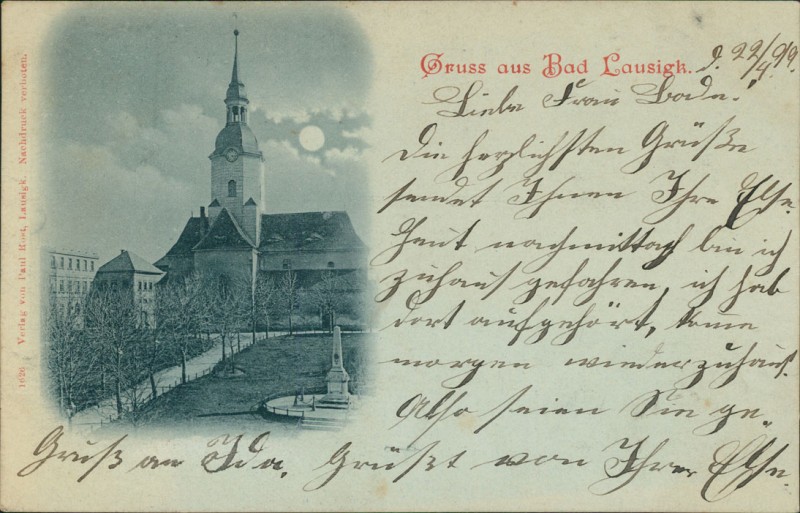 Gruss aus Bad Lausigk.
d. 22/4. 99.
Liebe Frau Bode!
Die herzlichsten Grüße
sendet Ihnen Ihre Else.
Heut nachmittag bin ich
zuhaus gefahren, ich hab
dort aufgehört, komme
morgen wieder zuhaus.
Also seien Sie ge-
grüßt von Ihrer Else.
Gruß an Ida.
1626 Verlag von Paul Rost, Lausigk. Nachdruck verboten.